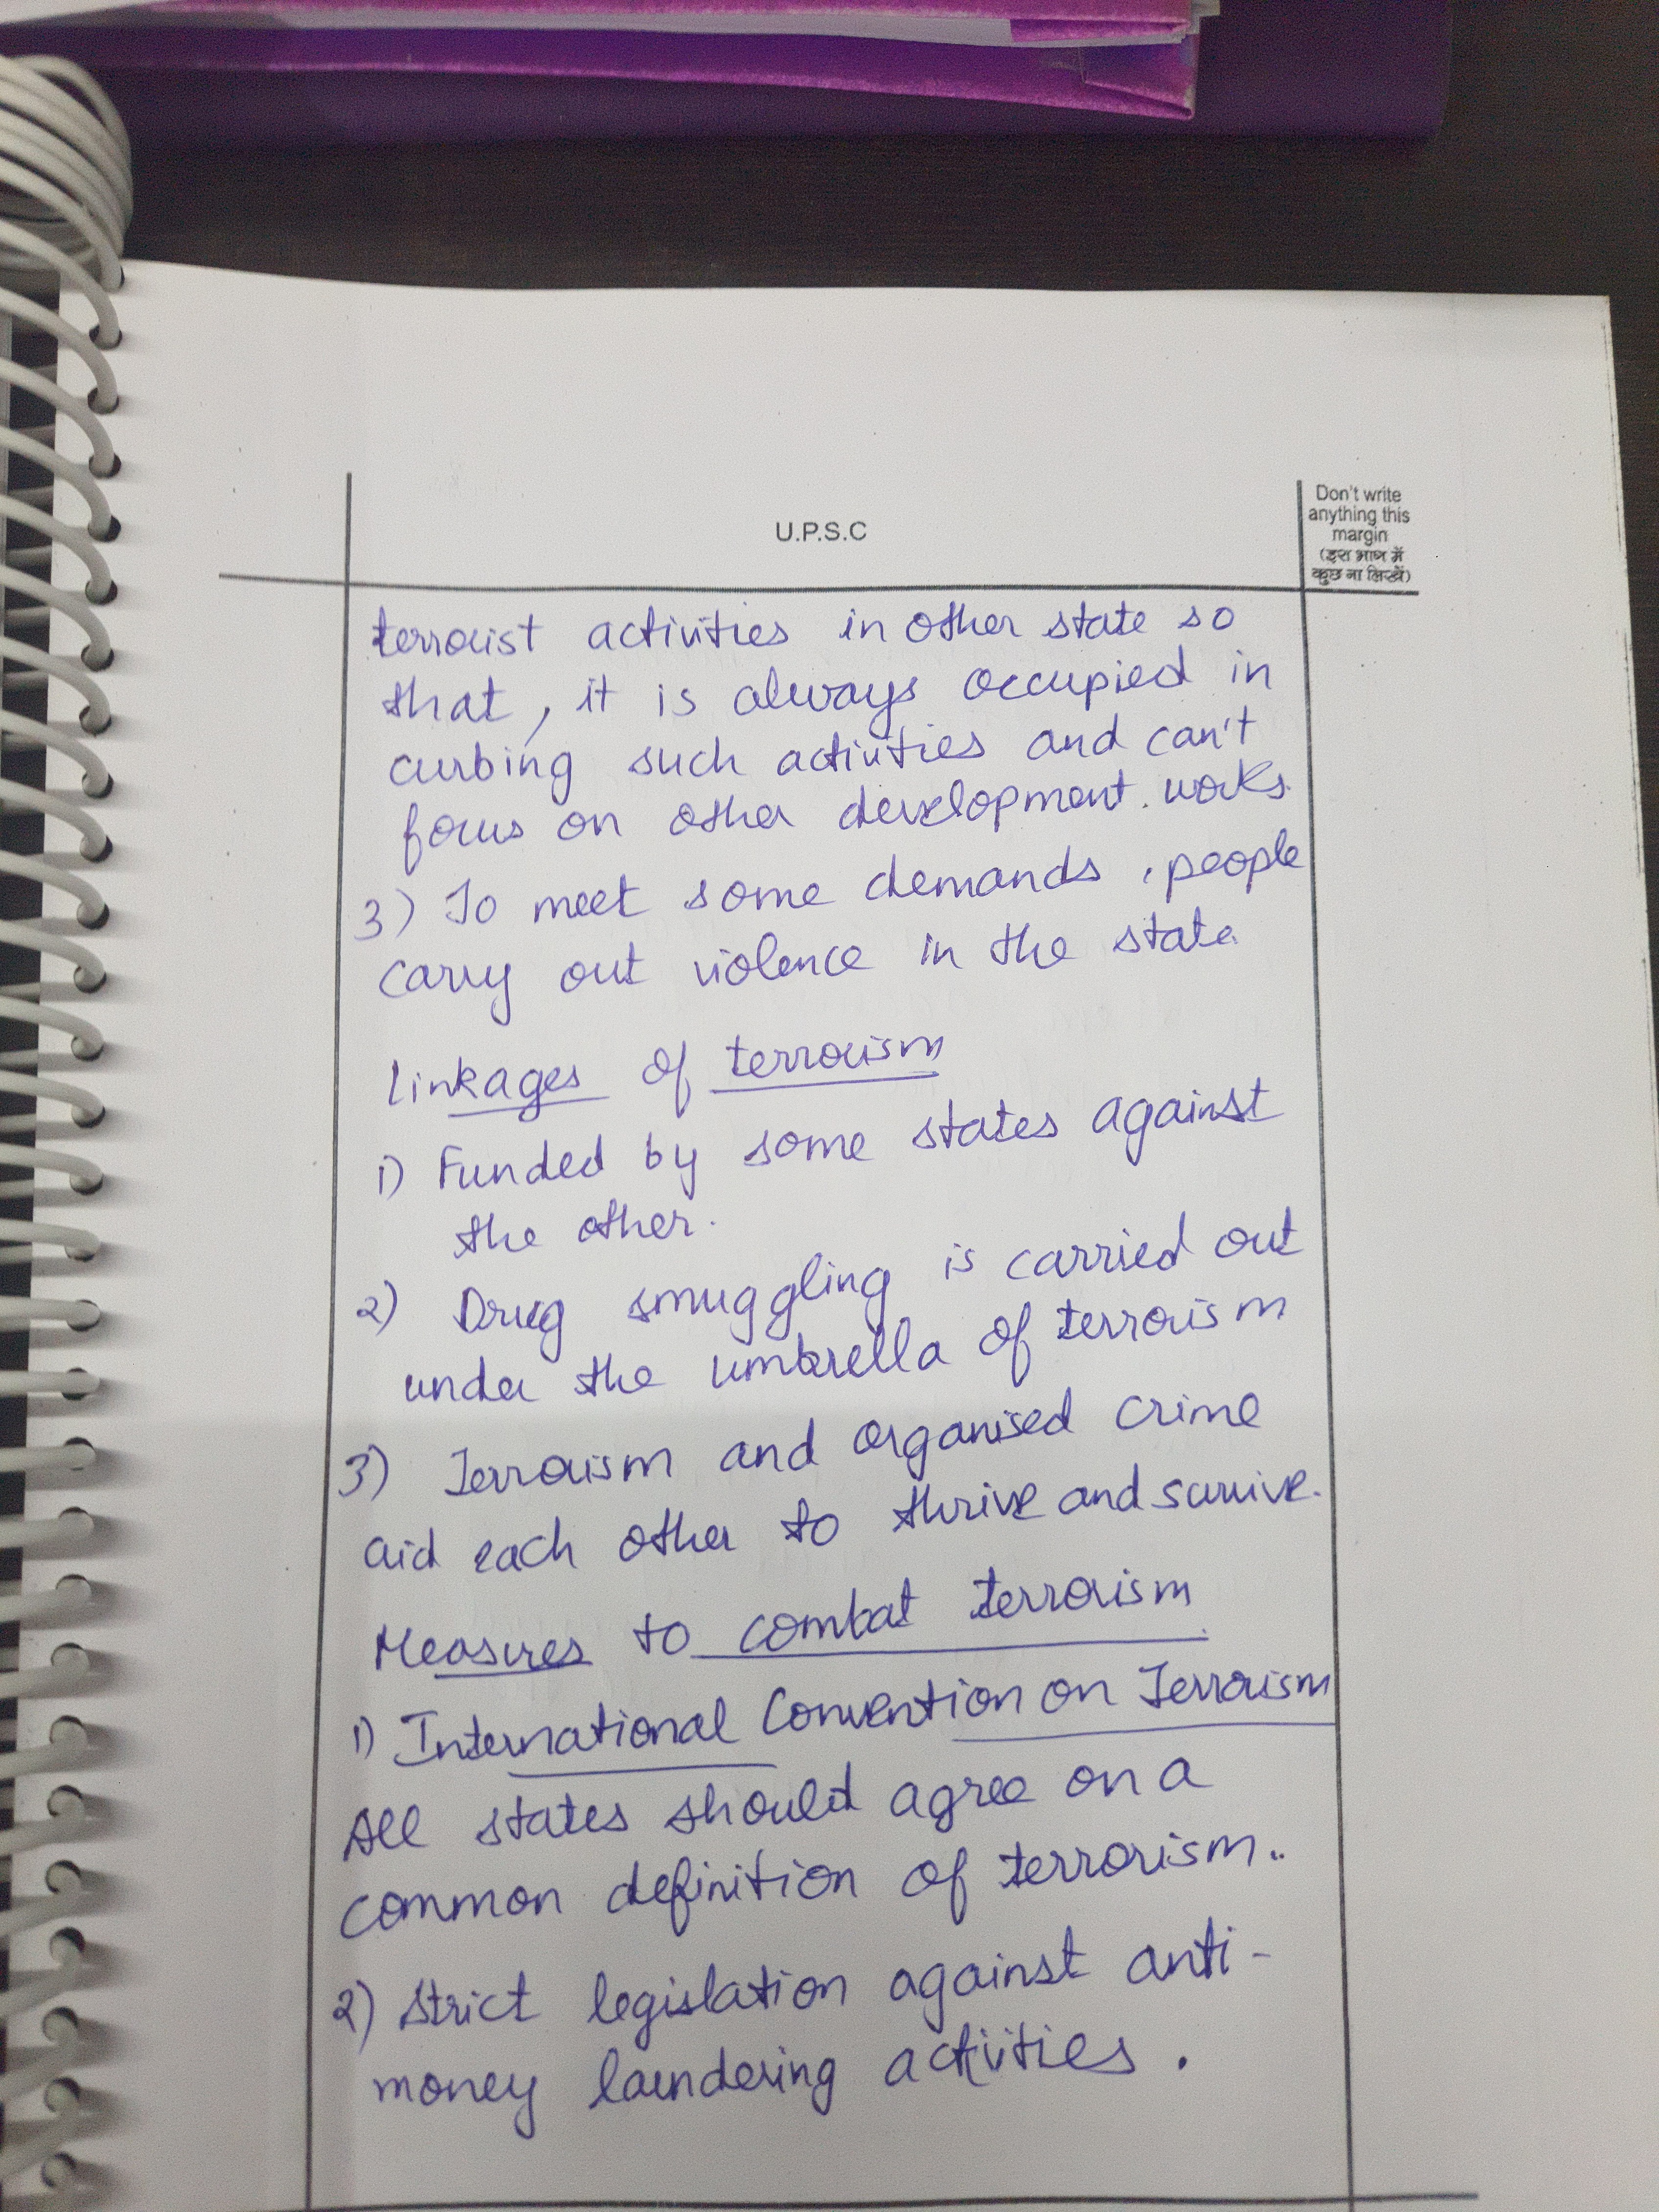 U.P.S.C
Don't write
anything this
margin
(इस भाग में
कुछ ना लिखें)
terrorist activities in other state so
that, it is always occupied in
curbing such activities and can't
focus on other development works.
3) To meet some demands, people
carry out violence in the state.
Linkages of terrorism
1) Funded by some states against
the other.
2) Drug smuggling is carried out
under the umbrella of terrorism
3) Terrorism and organised crime
aid each other to thrive and survive.
Measures to combat terrorism
1) International Convention on Terrorism
All states should agree on a
common definition of terrorism..
2) Strict legislation against anti-
money laundering activities.